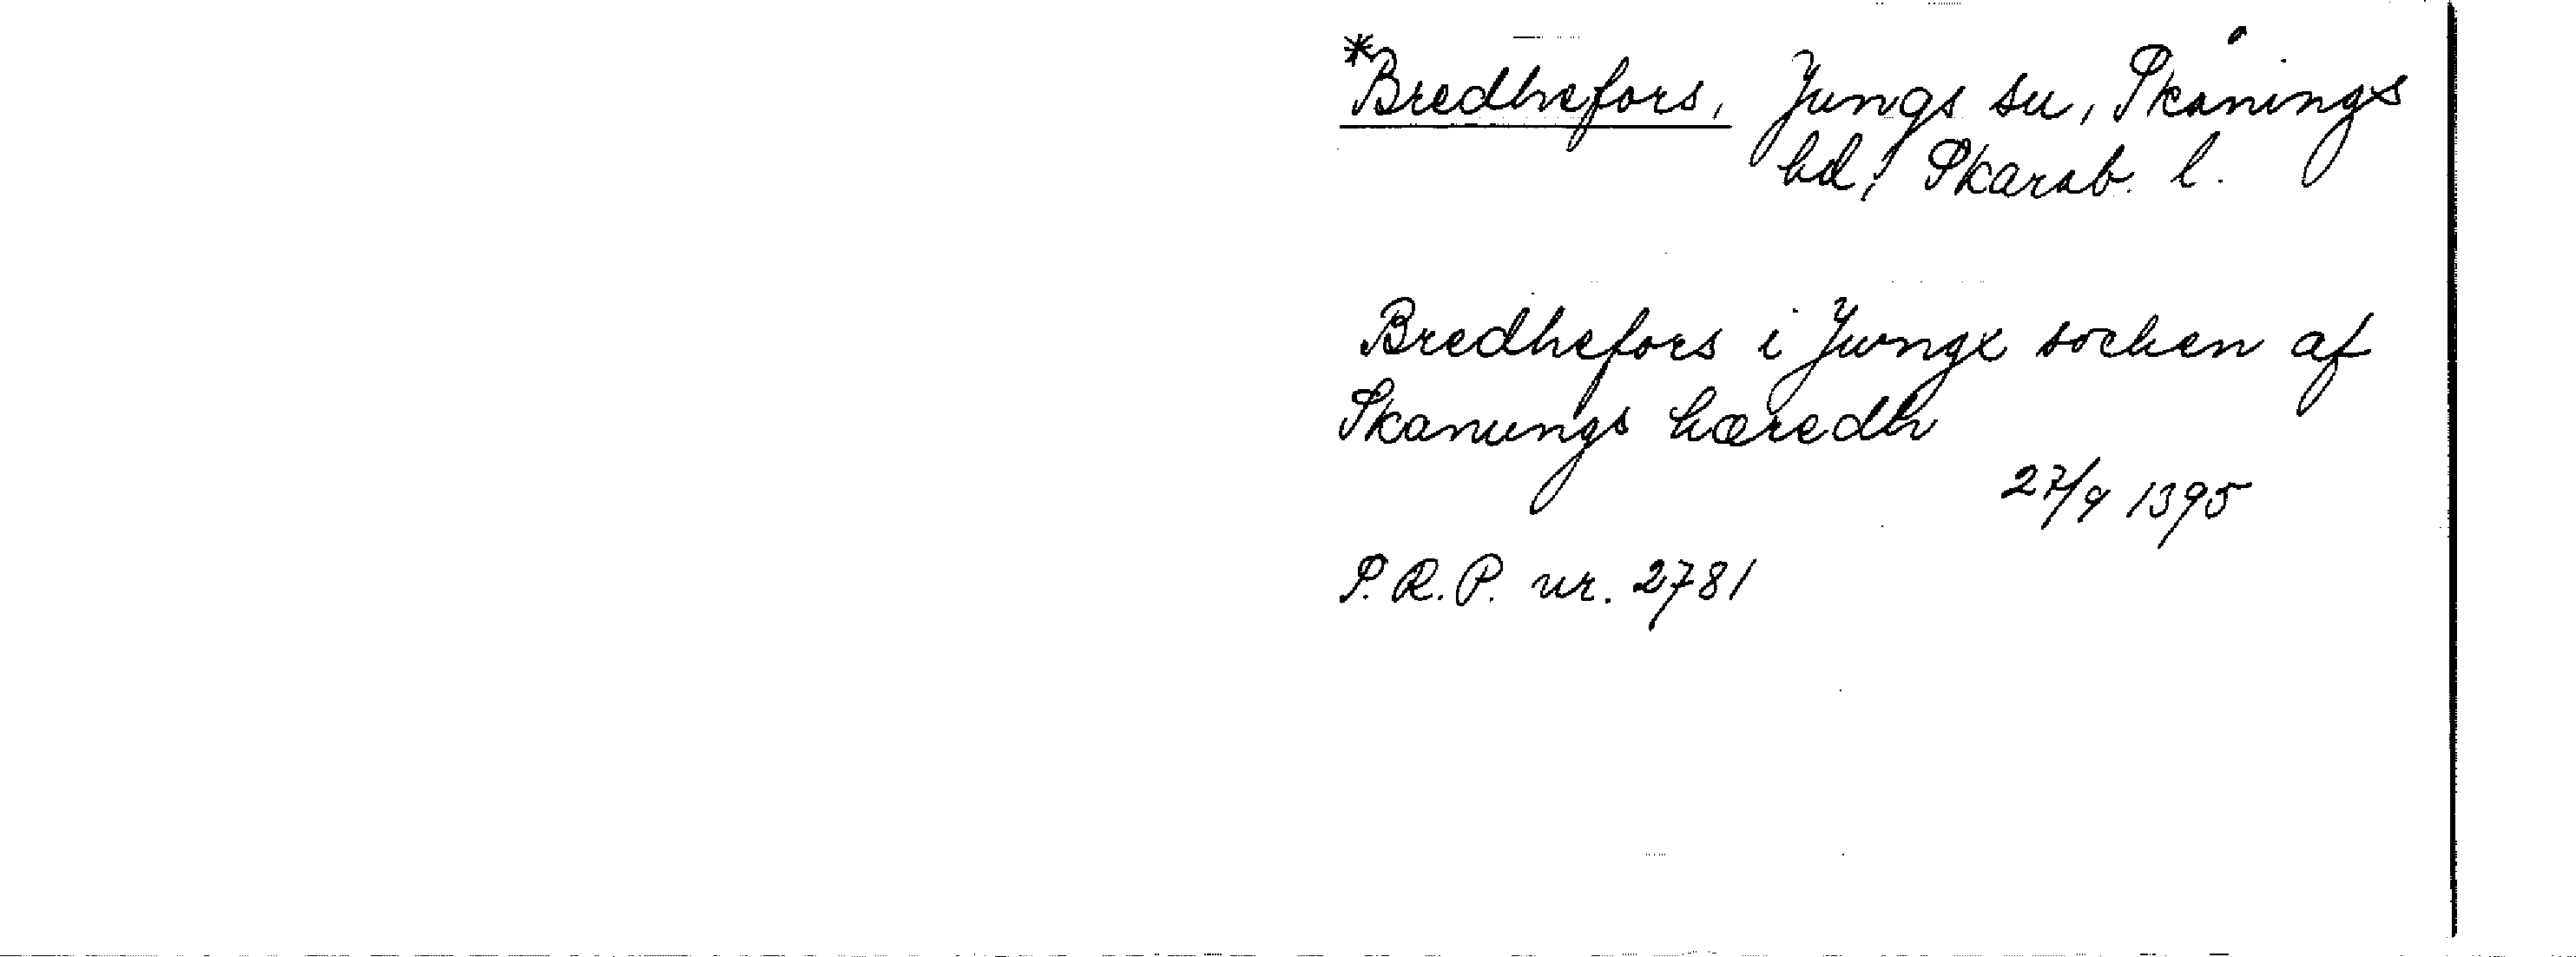 *Bredhefors, Jungs sn, Skånings
hd, Skarab. l.
Bredhefors i Jungx sochen af
Skanungs hæredh
27/9 1395
S.R.P. nr. 2781